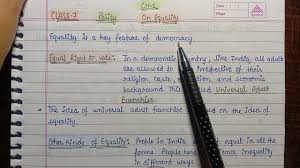 CH-1
CLASS-7 Polity On Equality
Equality is a key feature of democracy.
Equal Right to Vote: In a democratic country, like India, all adults
are allowed to irrespective of their
religion, caste, education, and economic
background. this is called Universal Adult
Franchise.
The idea of universal adult franchise based on the idea of
equality.
Other Kinds of Equality: People in India equal in all the
forms. People here inequality
in different ways